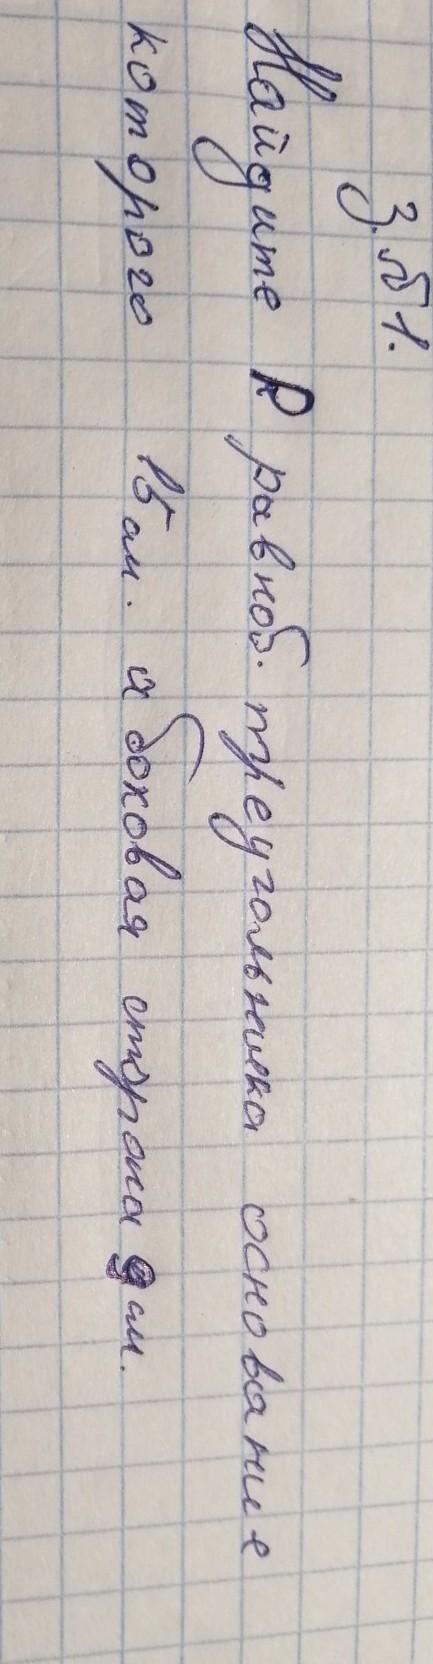 З. №1.
Найдите R равноб. треугольника основание
которого 15 см. а боковая сторона 9 см.